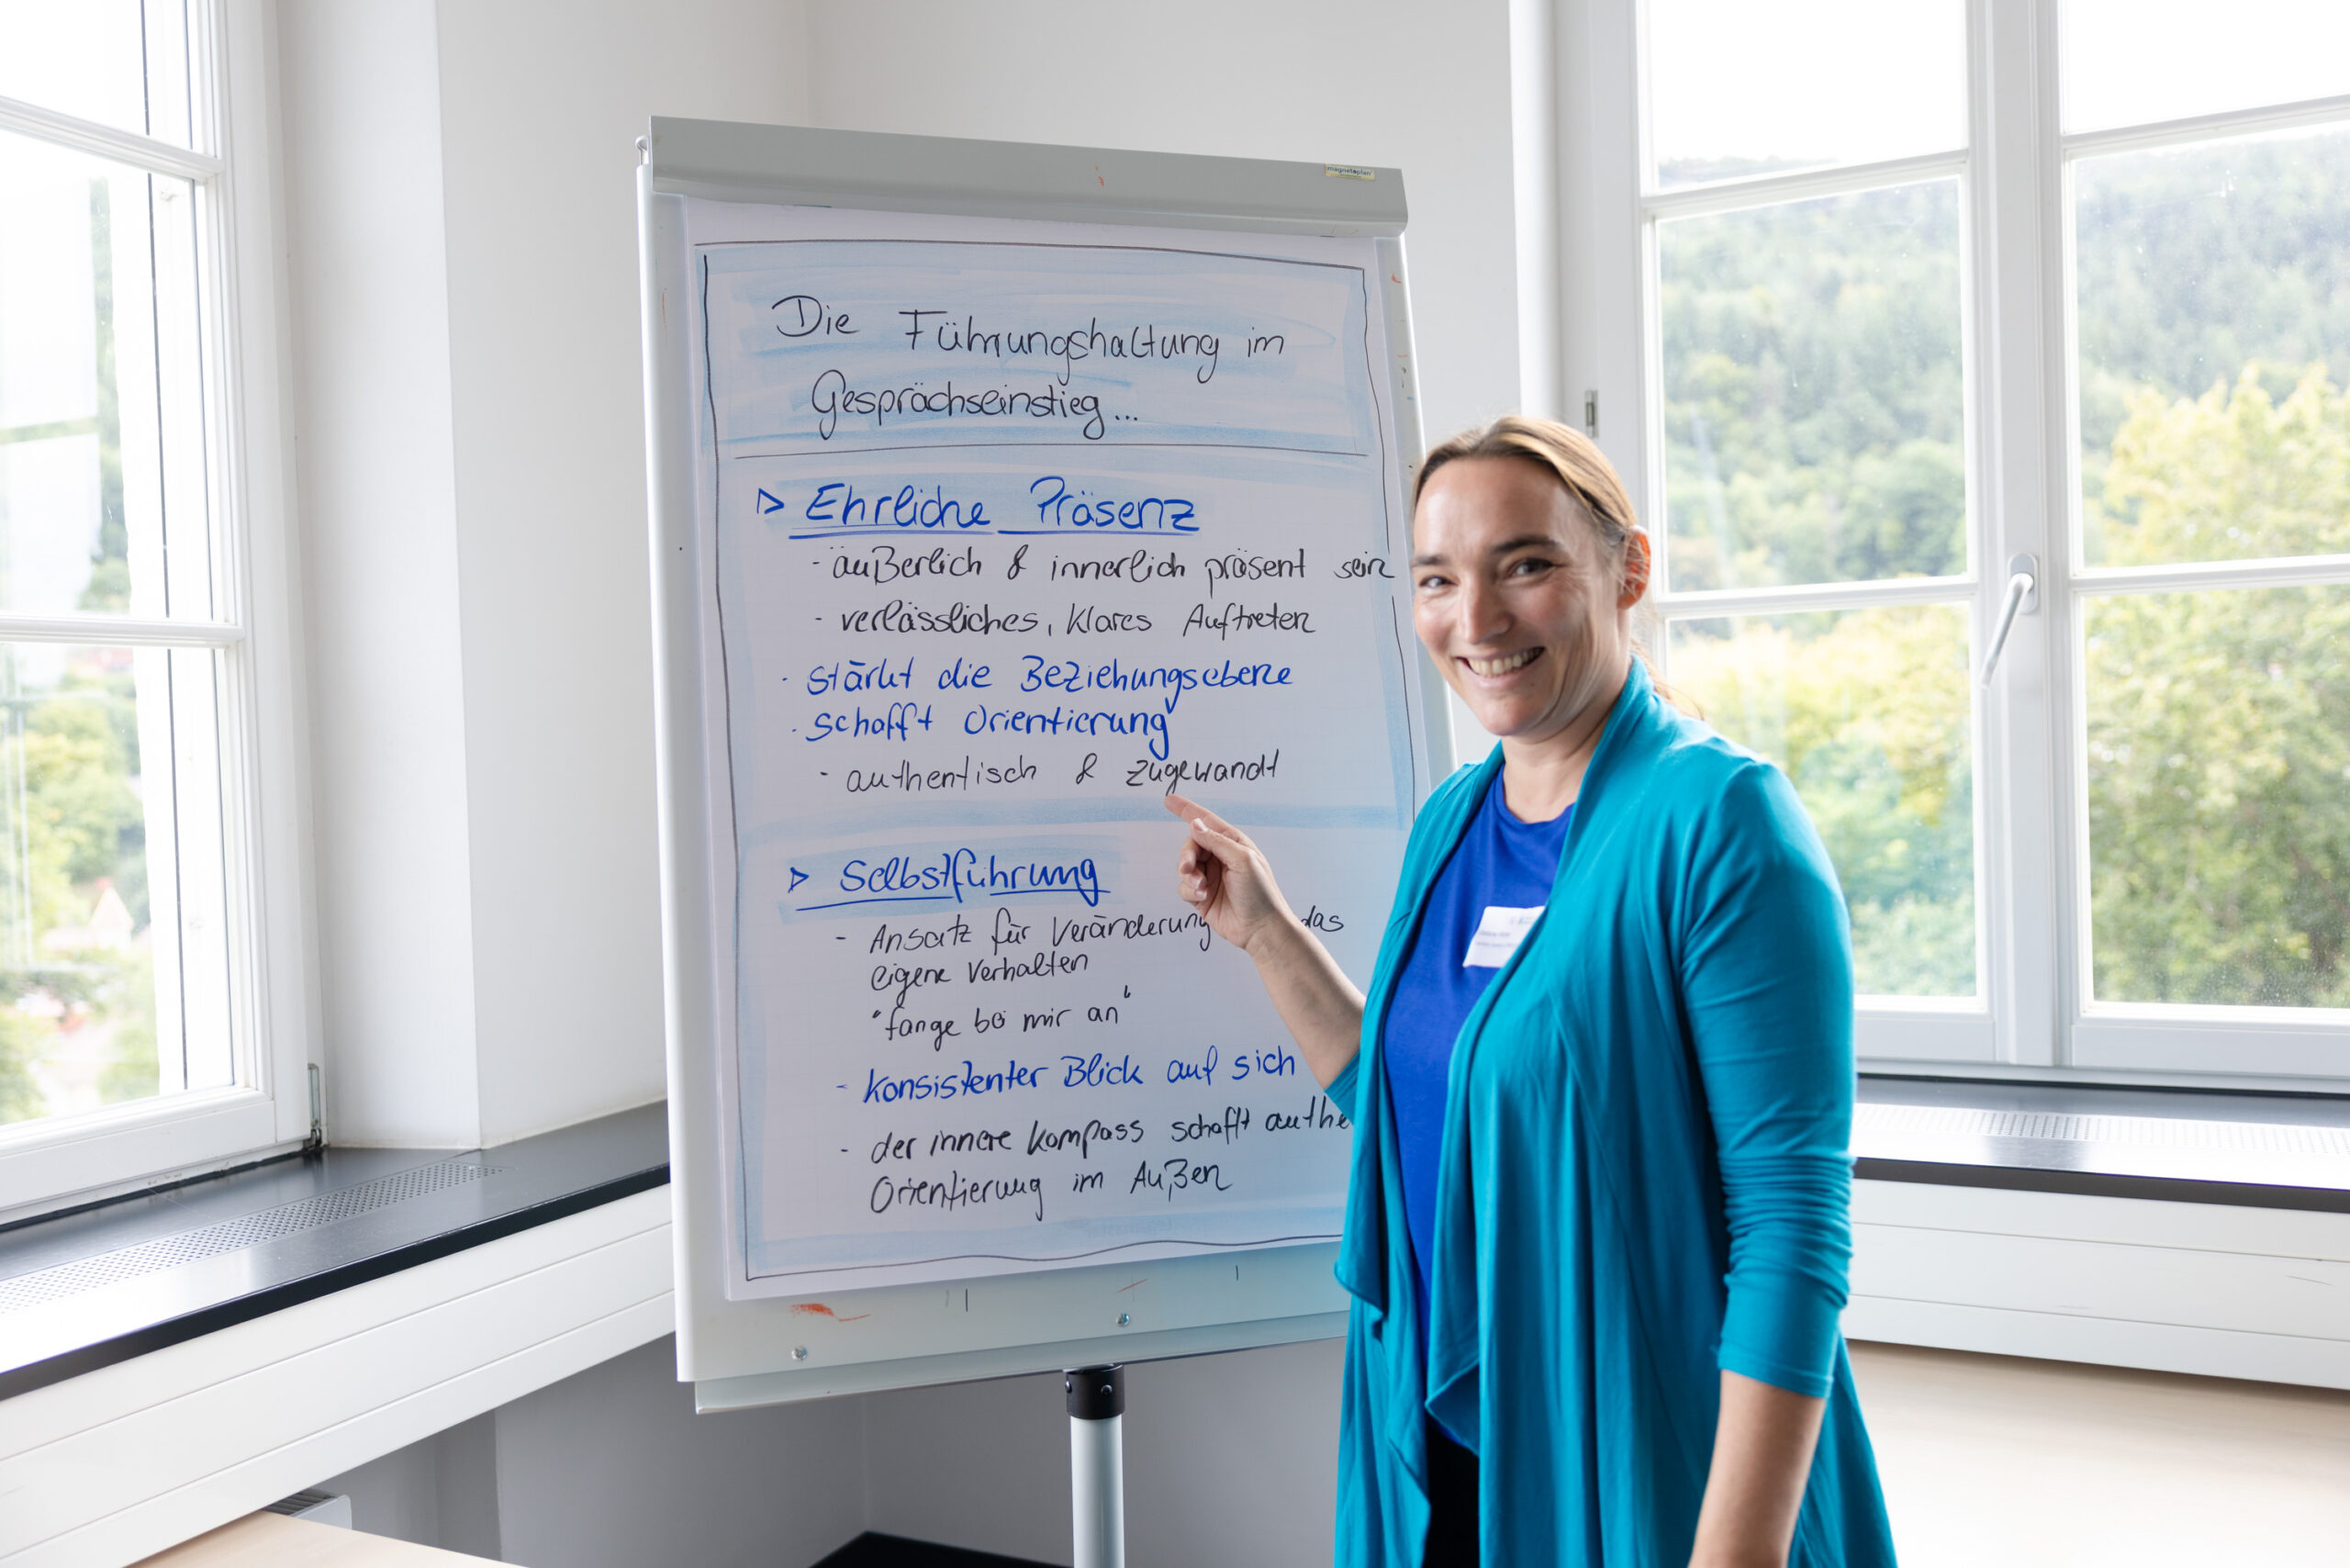 magnetoplan
Die Führungshaltung im
Gesprächseinstieg...
▷ Ehrliche Präsenz
- äußerlich & innerlich präsent sein
- verlässliches, klares Auftreten
- stärkt die Beziehungsebene
- schafft Orientierung
- authentisch & zugewandt
▷ Selbstführung
- Ansatz für Veränderung das
eigene Verhalten
"fange bei mir an"
- Konsistenter Blick auf sich
- der innere Kompass schafft authe
Orientierung im Außen